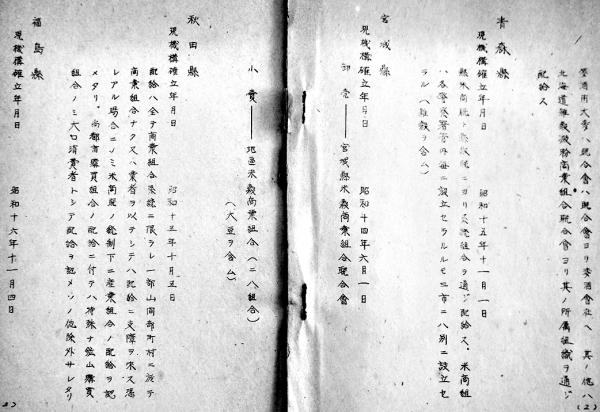 業酒用大麦ハ統合會ハ聯合會ヨリ麥酒會社ヘ 其ノ他ハ
北海道雜穀澱粉商業組合聯合會ヨリ其ノ所属組織ヲ通ジ
配給ス
青森縣
現機構確立年月日 昭和十五年十一月一日
縣米商聯ト 系統組合ヲ通ジ配給ス、米商組
ハ各警察署管内毎ニ設立セラルルモ 別ニ設立セ
ラル (雜穀ヲ含ム)
宮城縣
現機構確立年月日 昭和十四年六月一日
卸賣——宮城縣米穀商業組合聯合會
小賣——地區米穀商業組合(二八組合)
(大豆ヲ含ム)
秋田縣
現機構確立年月日 昭和十五年十月五日
配給ハ全テ商業組合系統ニ限ラレ一部山間部町村ニ於テ
商業組合ナク又ハ業者ヲ以テシテハ配給ニ支障ヲ來ス惧
レアル場合ニノミ米商聯ノ統制下ニ産業組合ノ配給ヲ認
メタリ。尚都市購買組合ノ配給ニ付テハ特殊ナ鉱山購買
組合ノミ大口消費者トシテ配給ヲ認メソノ他除外サレタリ
福島縣
現機構確立年月日 昭和十六年十一月四日
(2)